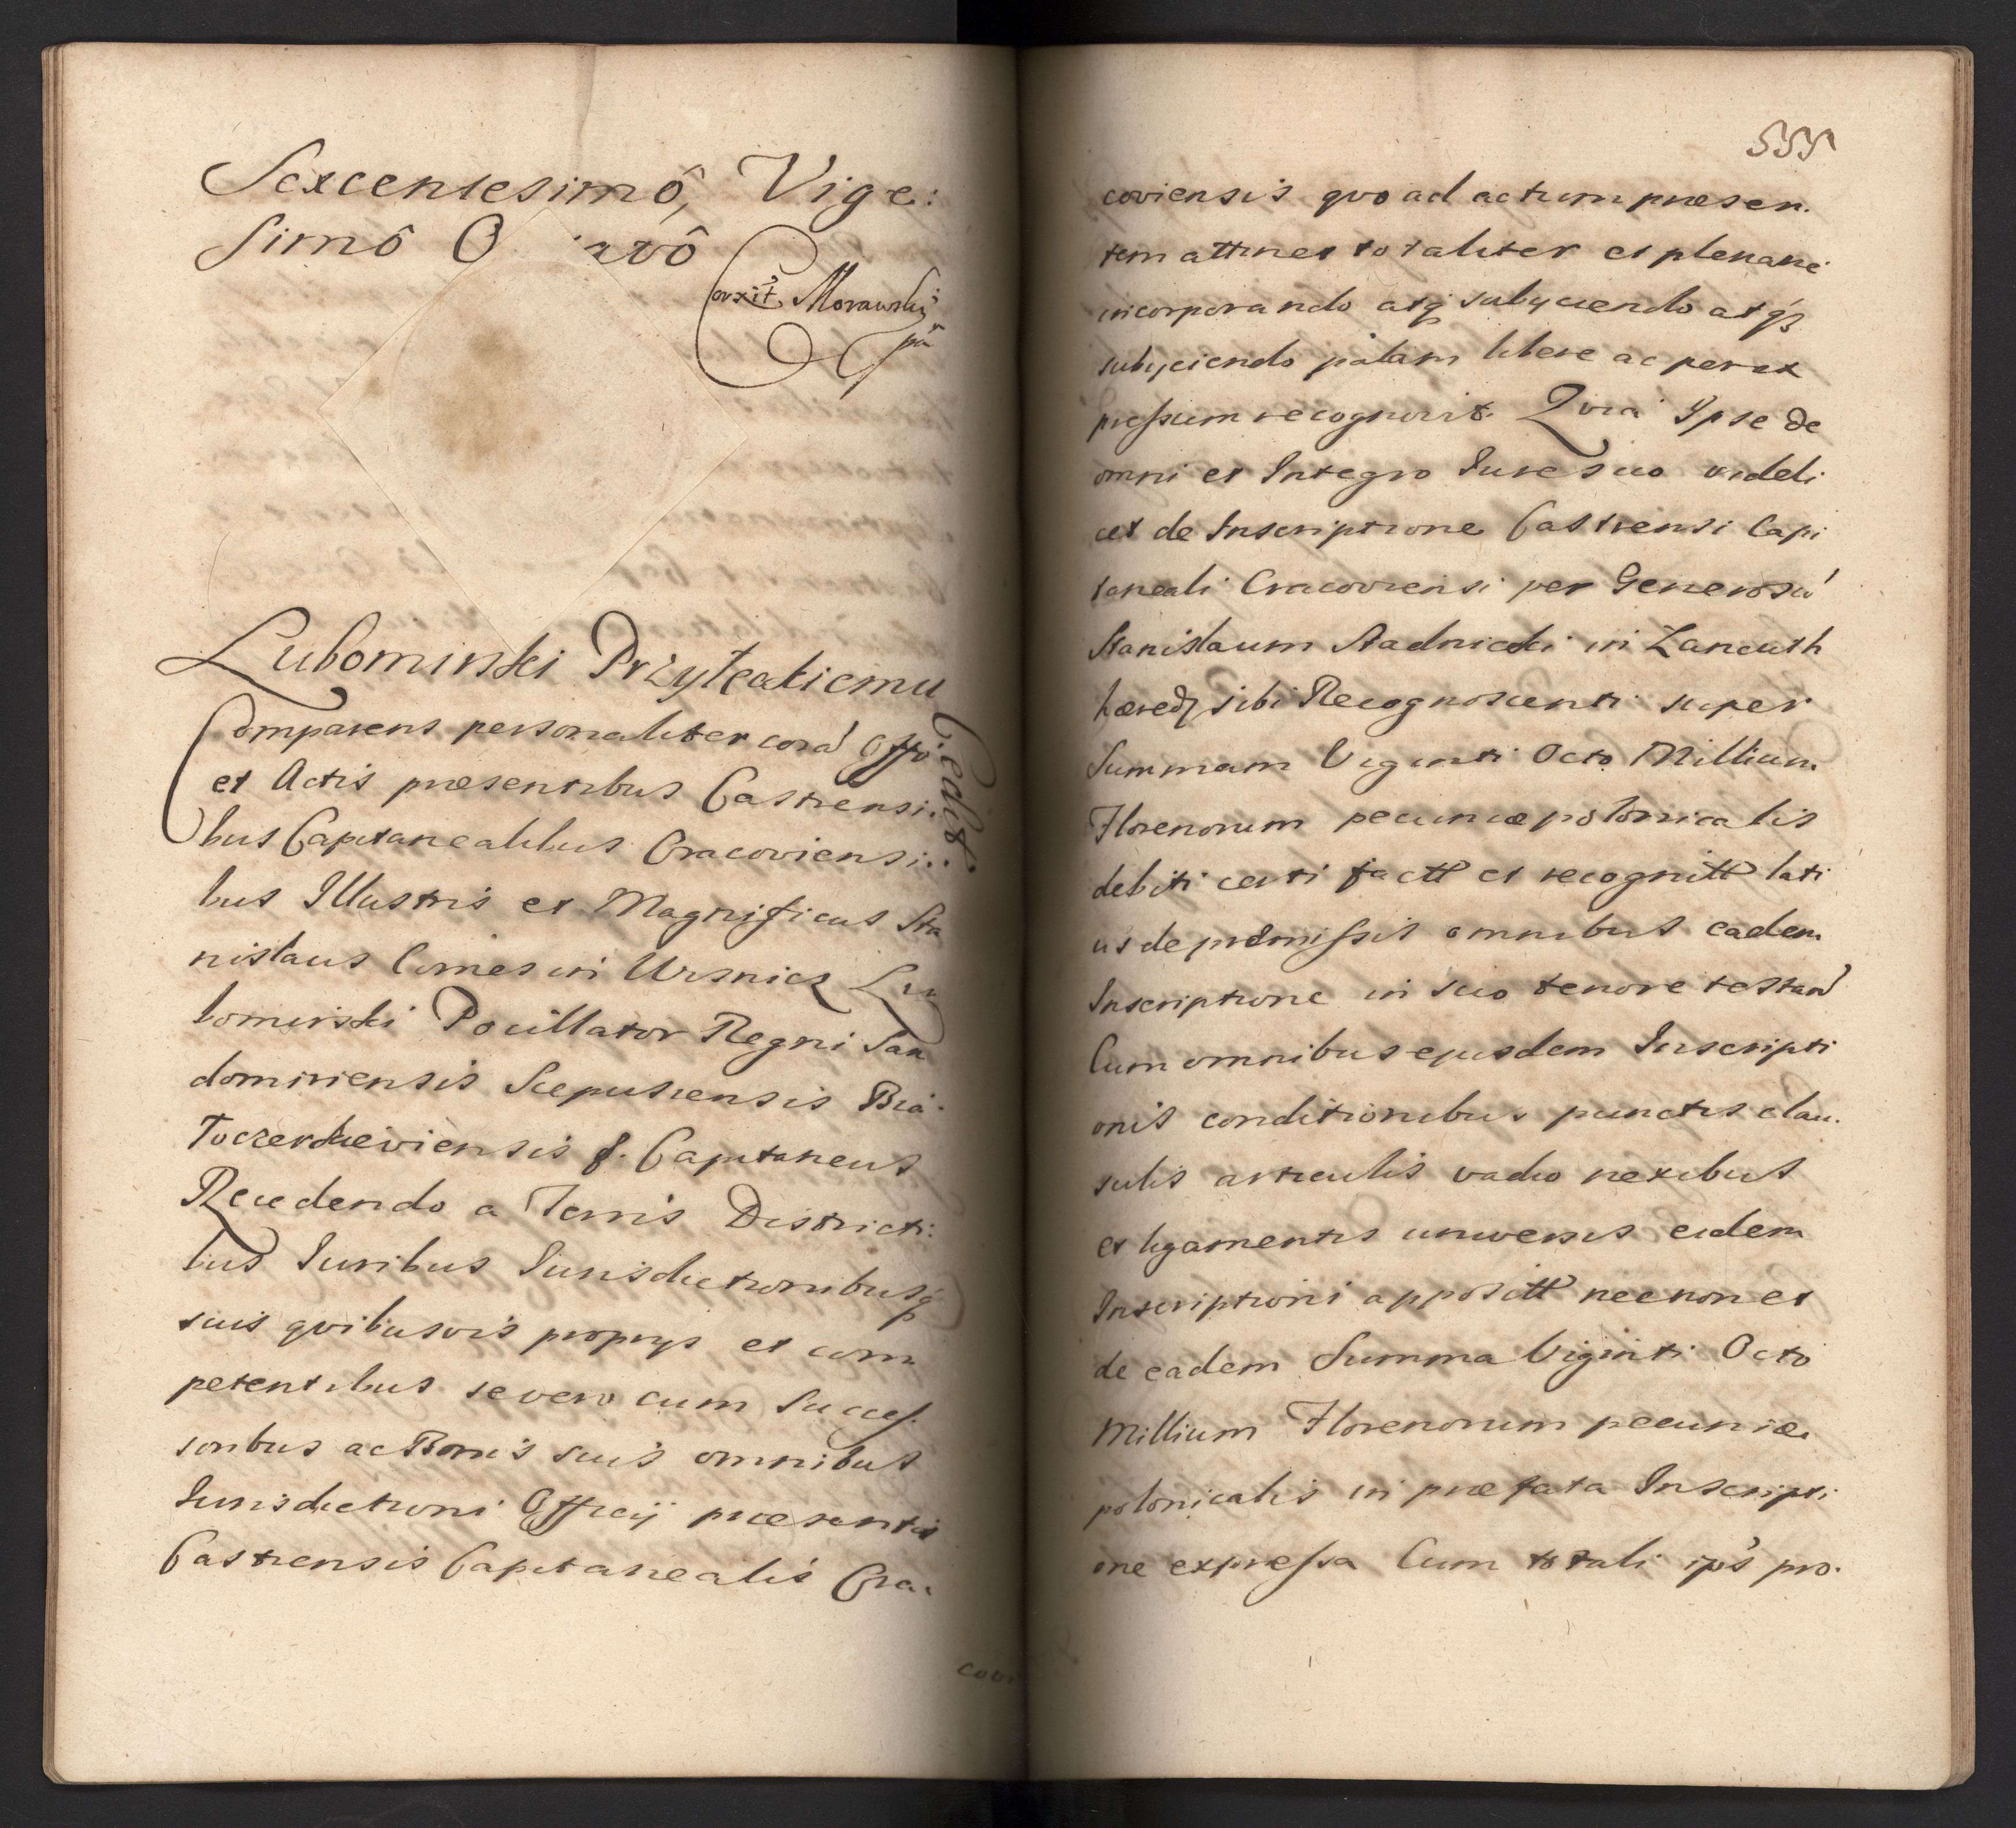 Sexcentesimô, Vige:
simô O  avô
Corxit Morawski
pa
Lubomirski Przyłeckiemu
Cedit
Comparens personaliter corã Offõ
et Actis præsentibus Castrensi:
bus Capitanealibus Cracoviensi:
bus Illustris et Magnificus Sta
nislaus Comes in Wisnicz Lu
bomirski Pocillator Regni San
domiriensis Scepusiensis Bia-
łoczerkieviensis &. Capitaneus
Recedendo a Terris Districti:
bus Iuribus Iurisdictionibusq
suis qvibusvis proprys et com
petentibus se vero cum Succes.
soribus ac Bonis suis omnibus
Iurisdictioni Officij præsentis
Castrensis Capitanealis Cra-
covi
555
coviensis qvo ad actum præsen.
tem attinet totaliter et plenarie
incorporando atq subyciendo atq
subyciendo palam libere ac per ex
pressum recognovit. Qvia Ipse de
omni et Integro Iure suo videli
cet de Inscriptione Castrensi Capi
taneali Cracoviensi per Generosũ
Stanislaum Stadnicki in Lancuth
hæredẽ sibi Recognoscenti super
Summam Viginti Octo Millium
Florenorum pecuniæ polonicalis
debiti certi factt et recognitt lati
us de præmissis omnibus eadem
Inscriptione in suo tenore testand
Cum omnibus ejusdem Inscripti
onis conditionibus punctis clau.
sulis articulis vadio nexibus
et ligamentis universis eidem
Inscriptioni appositt necnon et
de eadem Summa Viginti Octo
Millium Florenorum pecuniæ
polonicalis in præfata Inscripti
one expressa Cum totali ips pro.